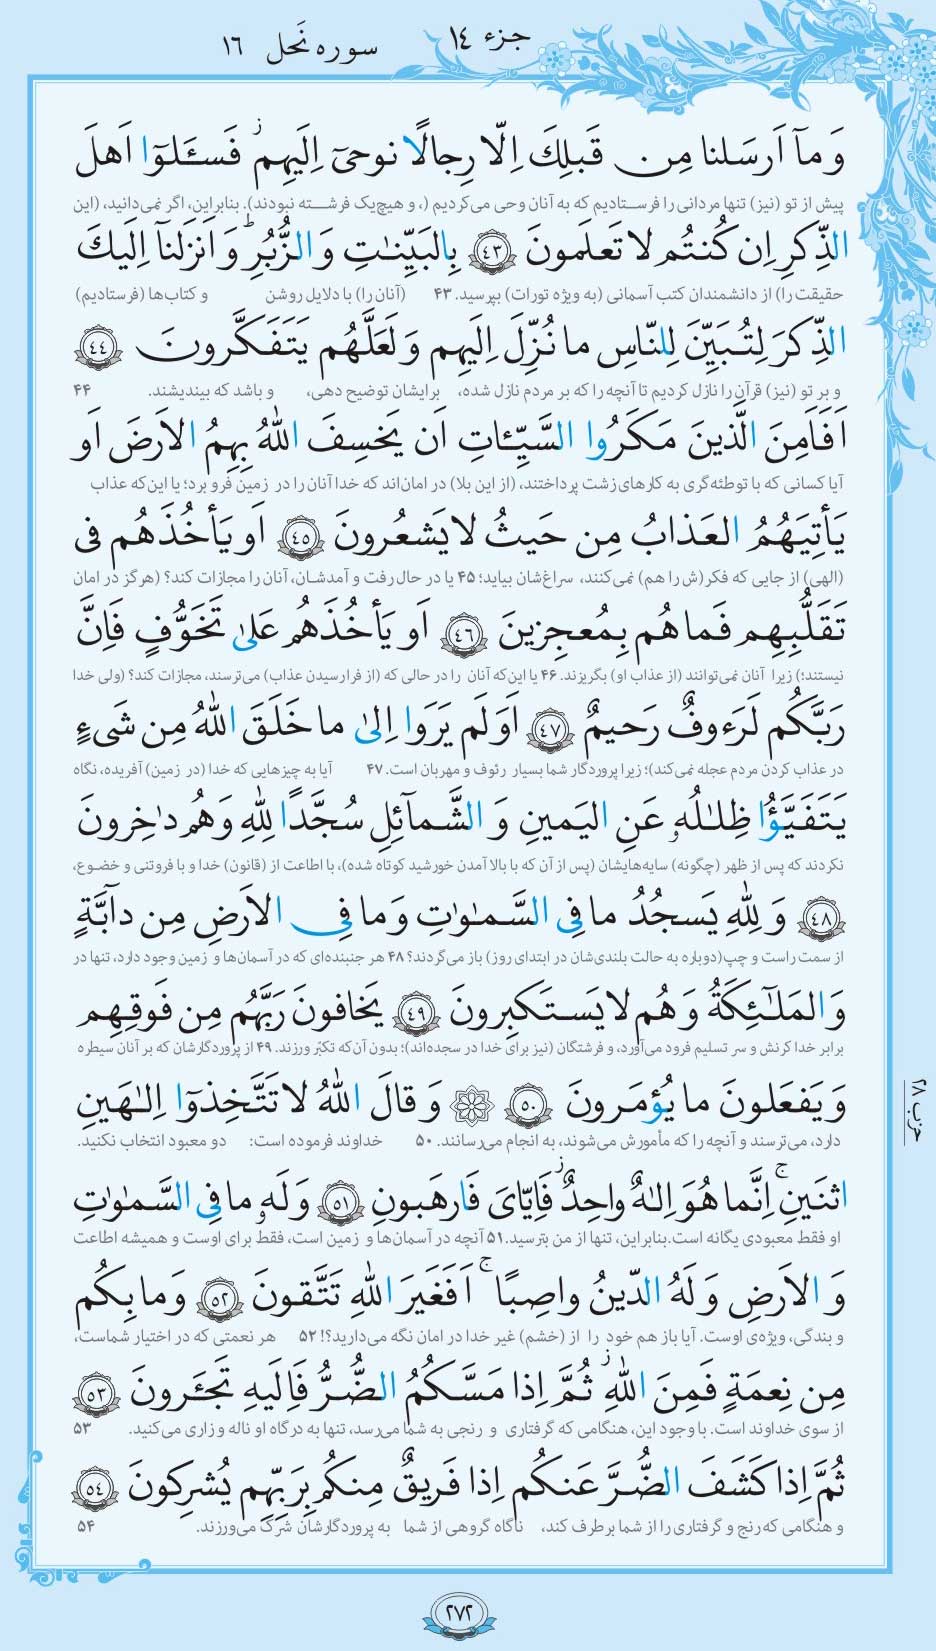 جزء ١٤
سوره نَحل ١٦
وَ مآ اَرسَلنا مِن قَبلِكَ اِلّا رِجالًا نوحىٓ اِلَيهِم ۚ فَسـَٔلوٓا اَهلَ
پیش از تو (نیز) تنها مردانی را فرستادیم که به آنان وحی می‌کردیم (، و هیچ‌یک فرشته نبودند). بنابراین، اگر نمی‌دانید، (این
الذِّكرِ اِن كُنتُم لا تَعلَمونَ ﴿٤٣﴾ بِالبَيِّنـٰتِ وَ الزُّبُرِ ۗ وَ اَنزَلنآ اِلَيكَ
حقیقت را) از دانشمندان کتب آسمانی (به ویژه تورات) بپرسید. ۴۳ (آنان را) با دلایل روشن و کتاب‌ها (فرستادیم)
الذِّكرَ لِتُبَيِّنَ لِلنّاسِ ما نُزِّلَ اِلَيهِم وَ لَعَلَّهُم يَتَفَكَّرونَ ﴿٤٤﴾
و بر تو (نیز) قرآن را نازل کردیم تا آنچه را که بر مردم نازل شده، برایشان توضیح دهی، و باشد که بیندیشند. ۴۴
اَفَاَمِنَ الَّذينَ مَكَرُوا السَّيِّـٔاتِ اَن يَخسِفَ اللّٰهُ بِهِمُ الاَرضَ اَو
آیا کسانی که با توطئه‌گری به کارهای زشت پرداختند، (از این بلا) در امان‌اند که خدا آنان را در زمین فرو برد؛ یا این‌که عذاب
يَأتِيَهُمُ العَذابُ مِن حَيثُ لا يَشعُرونَ ﴿٤٥﴾ اَو يَأخُذَهُم فى
(الهی) از جایی که فکر(ش را هم) نمی‌کنند، سراغ‌شان بیاید؛ ۴۵ یا در حال رفت و آمدشان، آنان را مجازات کند؟ (هرگز در امان
تَقَلُّبِهِم فَما هُم بِمُعجِزينَ ﴿٤٦﴾ اَو يَأخُذَهُم عَلىٰ تَخَوُّفٍ فَاِنَّ
نیستند؛) زیرا آنان نمی‌توانند (از عذاب او) بگریزند. ۴۶ یا این‌که آنان را در حالی که (از فرا رسیدن عذاب) می‌ترسند، مجازات کند؟ (ولی خدا
رَبَّكُم لَرَءوفٌ رَحيمٌ ﴿٤٧﴾ اَوَلَم يَرَوا اِلىٰ ما خَلَقَ اللّٰهُ مِن شَىءٍ
در عذاب کردن مردم عجله نمی‌کند)؛ زیرا پروردگار شما بسیار رئوف و مهربان است. ۴۷ آیا به چیزهایی که خدا (در زمین) آفریده، نگاه
يَتَفَيَّؤُا ظِلـٰلُهٗ عَنِ اليَمينِ وَ الشَّمآئِلِ سُجَّدًا لِلّٰهِ وَ هُم دٰخِرونَ
نکردند که پس از ظهر (چگونه) سایه‌هایشان (پس از آن که با بالا آمدن خورشید کوتاه شده)، با اطاعت از (قانون) خدا و با فروتنی و خضوع،
﴿٤٨﴾ وَ لِلّٰهِ يَسجُدُ ما فِى السَّمـٰوٰتِ وَ ما فِى الاَرضِ مِن دآبَّةٍ
از سمت راست و چپ(دوباره به حالت بلندی‌شان در ابتدای روز) باز می‌گردند؟ ۴۸ هر جنبنده‌ای که در آسمان‌ها و زمین وجود دارد، تنها در
وَ المَلـٰٓئِكَةُ وَ هُم لا يَستَكبِرونَ ﴿٤٩﴾ يَخافونَ رَبَّهُم مِن فَوقِهِم
برابر خدا کرنش و سر تسلیم فرود می‌آورد، و فرشتگان (نیز برای خدا در سجده‌اند)؛ بدون آن‌که تکبّر ورزند. ۴۹ از پروردگارشان که بر آنان سیطره
وَ يَفعَلونَ ما يُؤمَرونَ ﴿٥٠﴾ ۞ وَ قالَ اللّٰهُ لا تَتَّخِذوٓا اِلـٰهَينِ
دارد، می‌ترسند و آنچه را که مأمورش می‌شوند، به انجام می‌رسانند. ۵۰ خداوند فرموده است: دو معبود انتخاب نکنید.
حزب ٢٨
اثنَينِ ۚ اِنَّما هُوَ اِلـٰهٌ واحِدٌ ۚ فَاِيّاىَ فَارهَبونِ ﴿٥١﴾ وَ لَهٗ ما فِى السَّمـٰوٰتِ
او فقط معبودی یگانه است.بنابراین، تنها از من بترسید.۵۱آنچه در آسمان‌ها و زمین است، فقط برای اوست و همیشه اطاعت
وَ الاَرضِ وَ لَهُ الدّينُ واصِبًا ۚ اَفَغَيرَ اللّٰهِ تَتَّقونَ ﴿٥٢﴾ وَ ما بِكُم
و بندگی، ویژه‌ی اوست. آیا باز هم خود را از (خشم) غیر خدا در امان نگه می‌دارید؟! ۵۲ هر نعمتی که در اختیار شماست،
مِن نِعمَةٍ فَمِنَ اللّٰهِ ۖ ثُمَّ اِذا مَسَّكُمُ الضُّرُّ فَاِلَيهِ تَجـَٔرونَ ﴿٥٣﴾
از سوی خداوند است. با وجود این، هنگامی که گرفتاری و رنجی به شما می‌رسد، تنها به درگاه او ناله و زاری می‌کنید. ۵۳
ثُمَّ اِذا كَشَفَ الضُّرَّ عَنكُم اِذا فَريقٌ مِنكُم بِرَبِّهِم يُشرِكونَ ﴿٥٤﴾
و هنگامی که رنج و گرفتاری را از شما برطرف کند، ناگاه گروهی از شما به پروردگارشان شرک می‌ورزند. ۵۴
٢٧٢